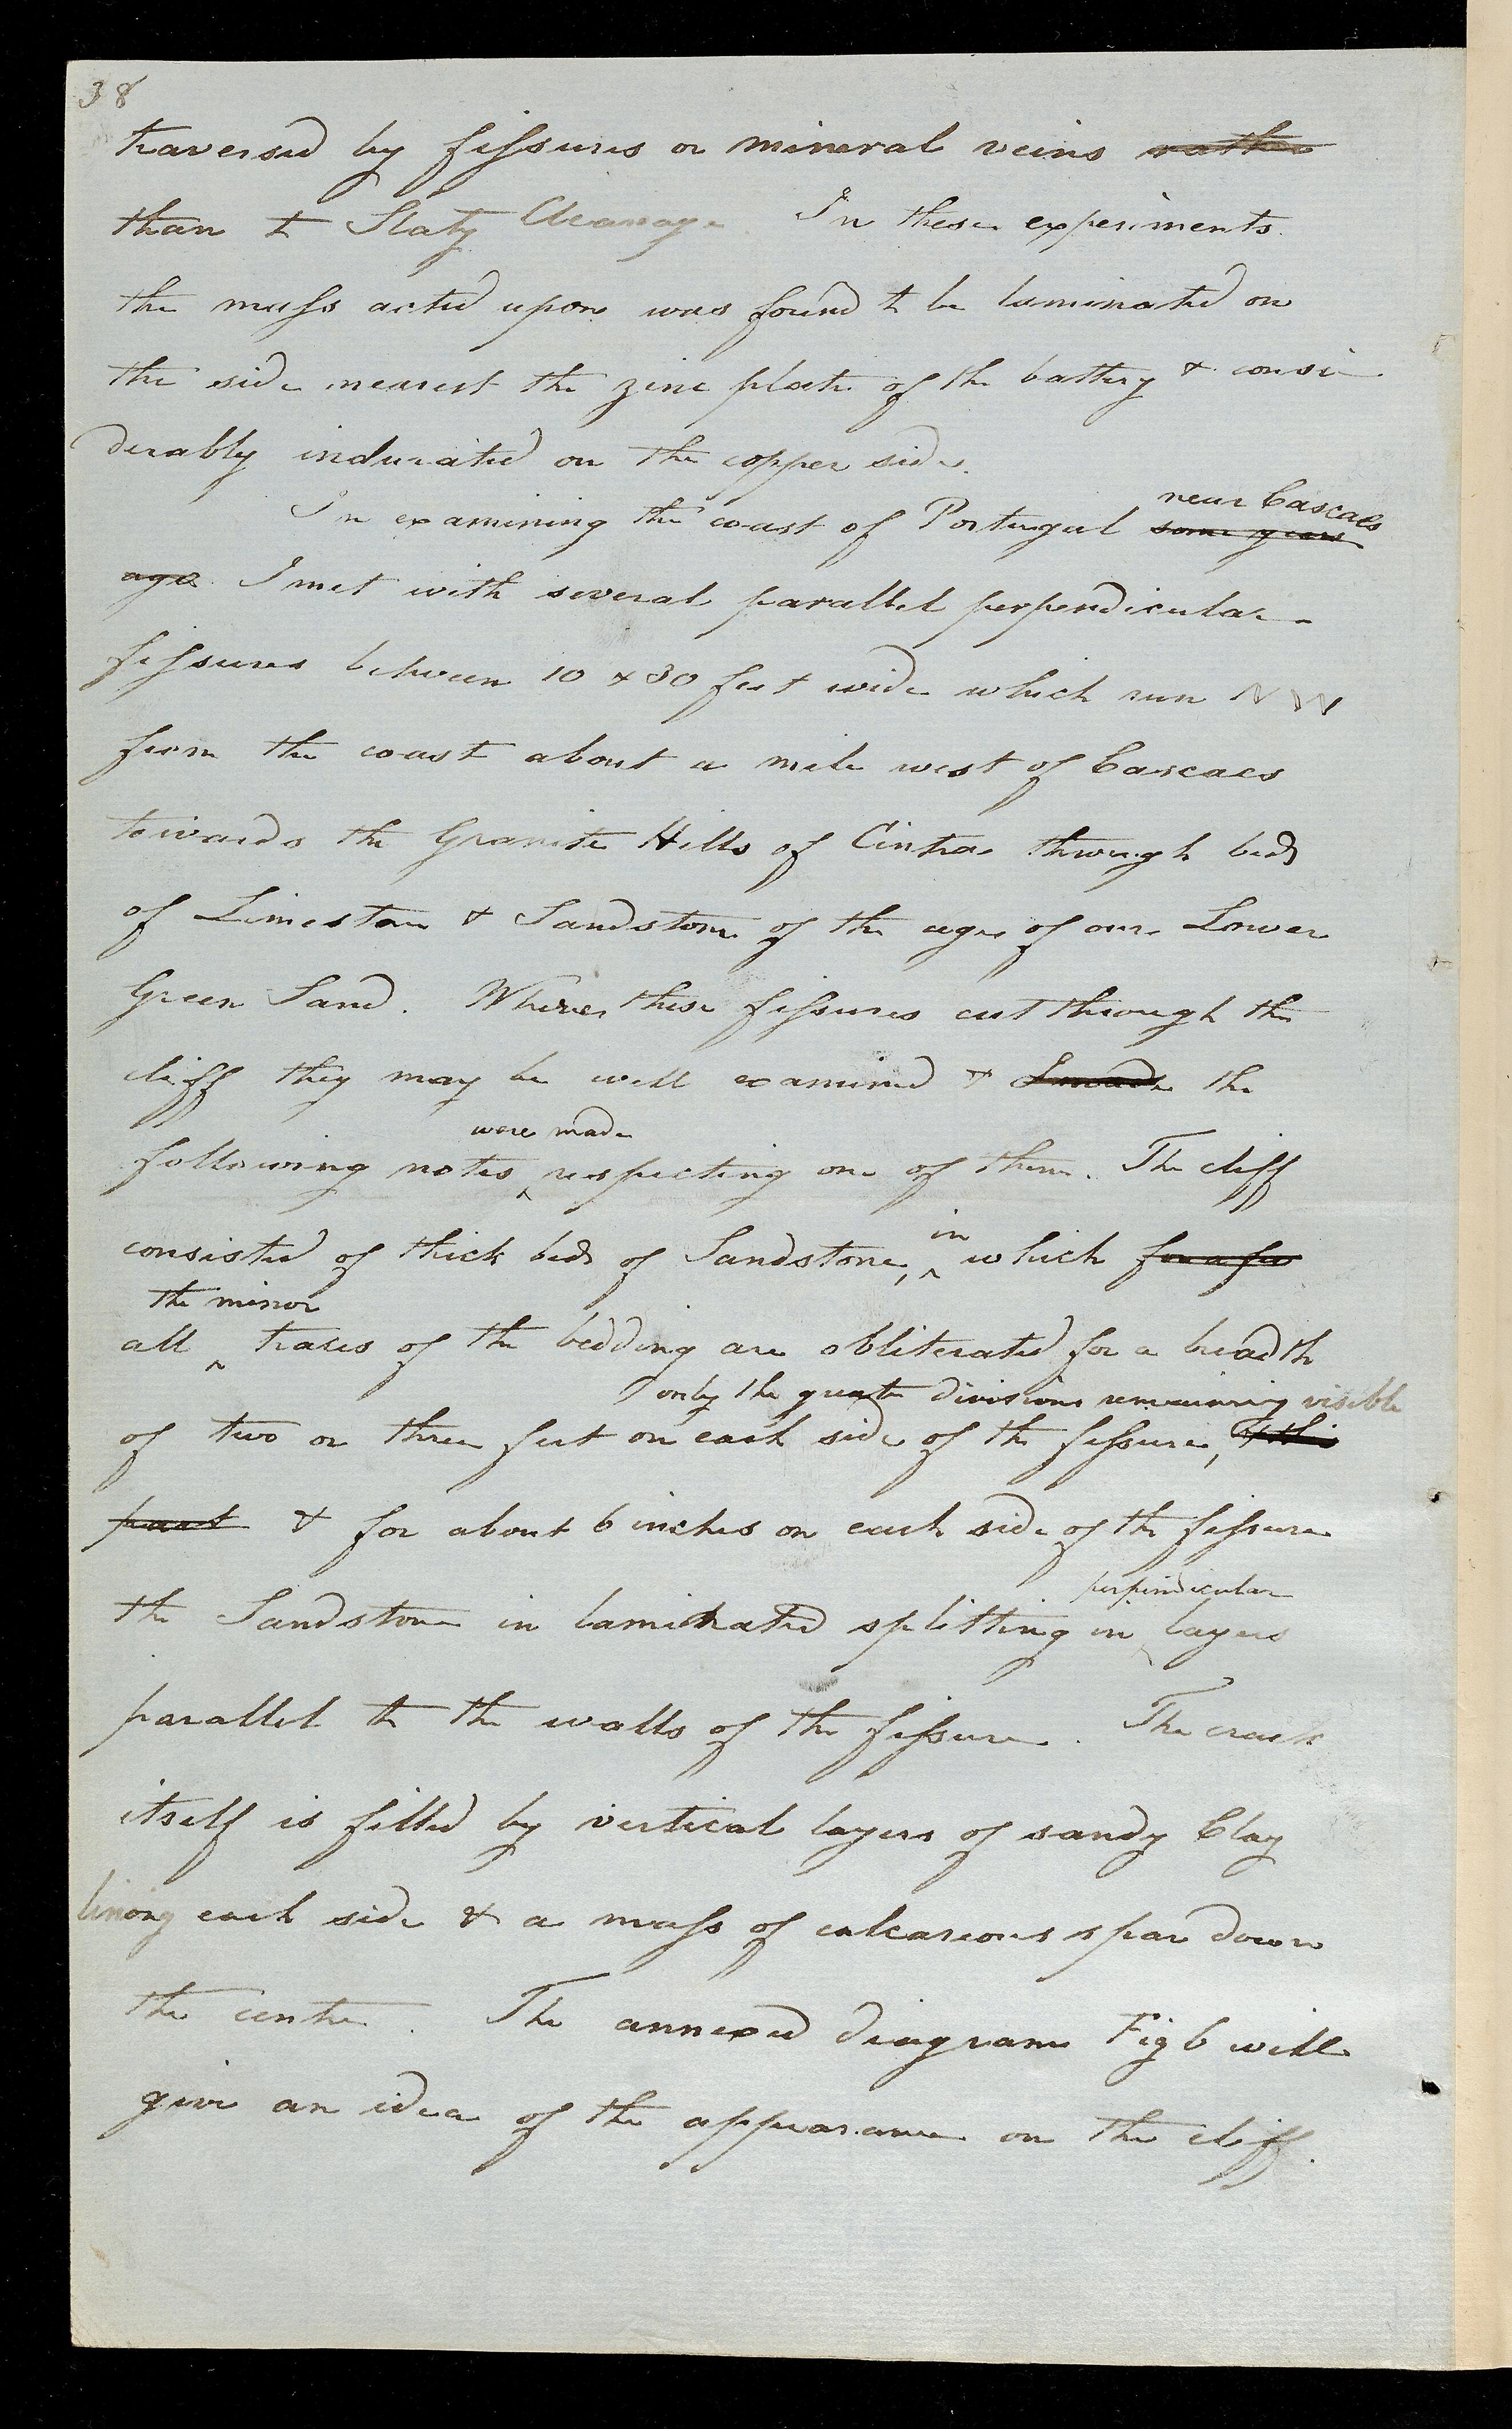 38
traversed by fissures or mineral veins rather
than to Slaty Cleavage. In these experiments
the mass acted upon was found to be laminated on
the side nearest the zinc plate of the battery & consi-
derably indurated on the copper side.
near Cascaes
In examining the coast of Portugal some years
ago I met with several parallel perpendicular
fissures between 10 & 30 feet wide which run NW
from the coast about a mile west of Cascaes
towards the Granite Hills of Cintra through beds
of Limestone & Sandstone of the age of our Lower
Green Sand. Where these fissures cut through the
cliff they may be well examined & I made the
were made
following notes ^ respecting one of them. The cliff
in
consisted of thick beds of Sandstone, ^ which for a few
the minor
all ^ traces of the bedding are obliterated for a breadth
only the greater divisions remaining visible
of two or three feet on each side of the fissure, of this
part & for about 6 inches on each side of the fissure
perpendicular
the Sandstone in laminated splitting in layers
parallel to the walls of the fissure. The crack
itself is filled by vertical layers of sandy Clay
lining each side & a mass of calcareous spar down
the centre. The annexed diagram Fig 6 will
give an idea of the appearance on the cliff.